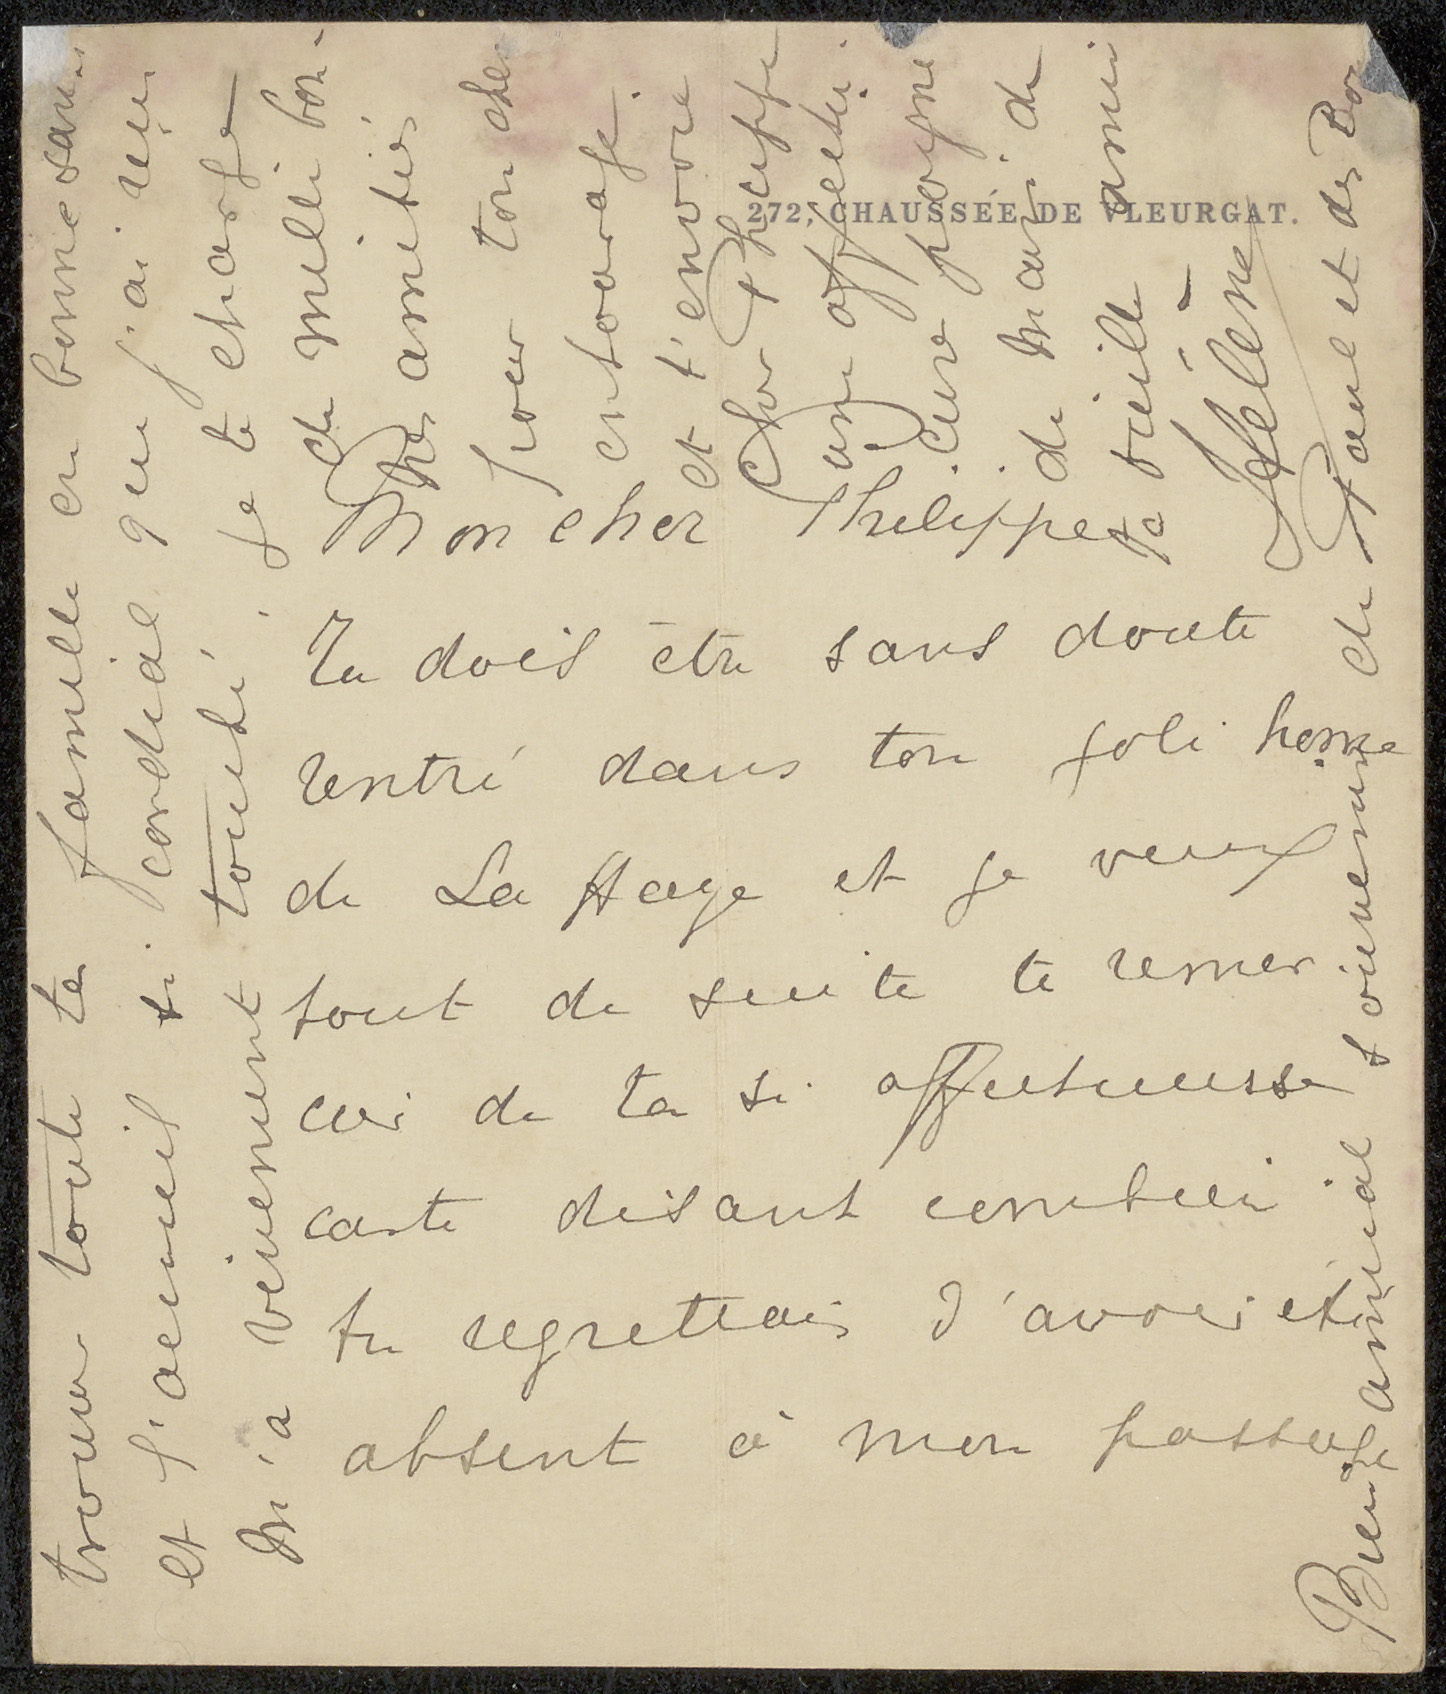 272, CHAUSSÉE DE VLEURGAT.
Mon cher Philippe
Tu dois être sans doute
rentré dans ton joli home
de La Haye et je veux
tout de suite te remer
cier de ta si affectueuse
carte disant combien
tu regrettais d'avoir été
absent à mon passage
trouver toute ta famille en bonne santé
et l'acueil si cordial que j'ai reçu
m'a vivement touché. je te charge
de mille bon
nes amitiés
pour ton cher
entourage.
et t'envoie
cher Philippe
une affectu.
euse poigné
de main. de
ta vieille amie
Hélène
Bien amical souvenir de Paul et des